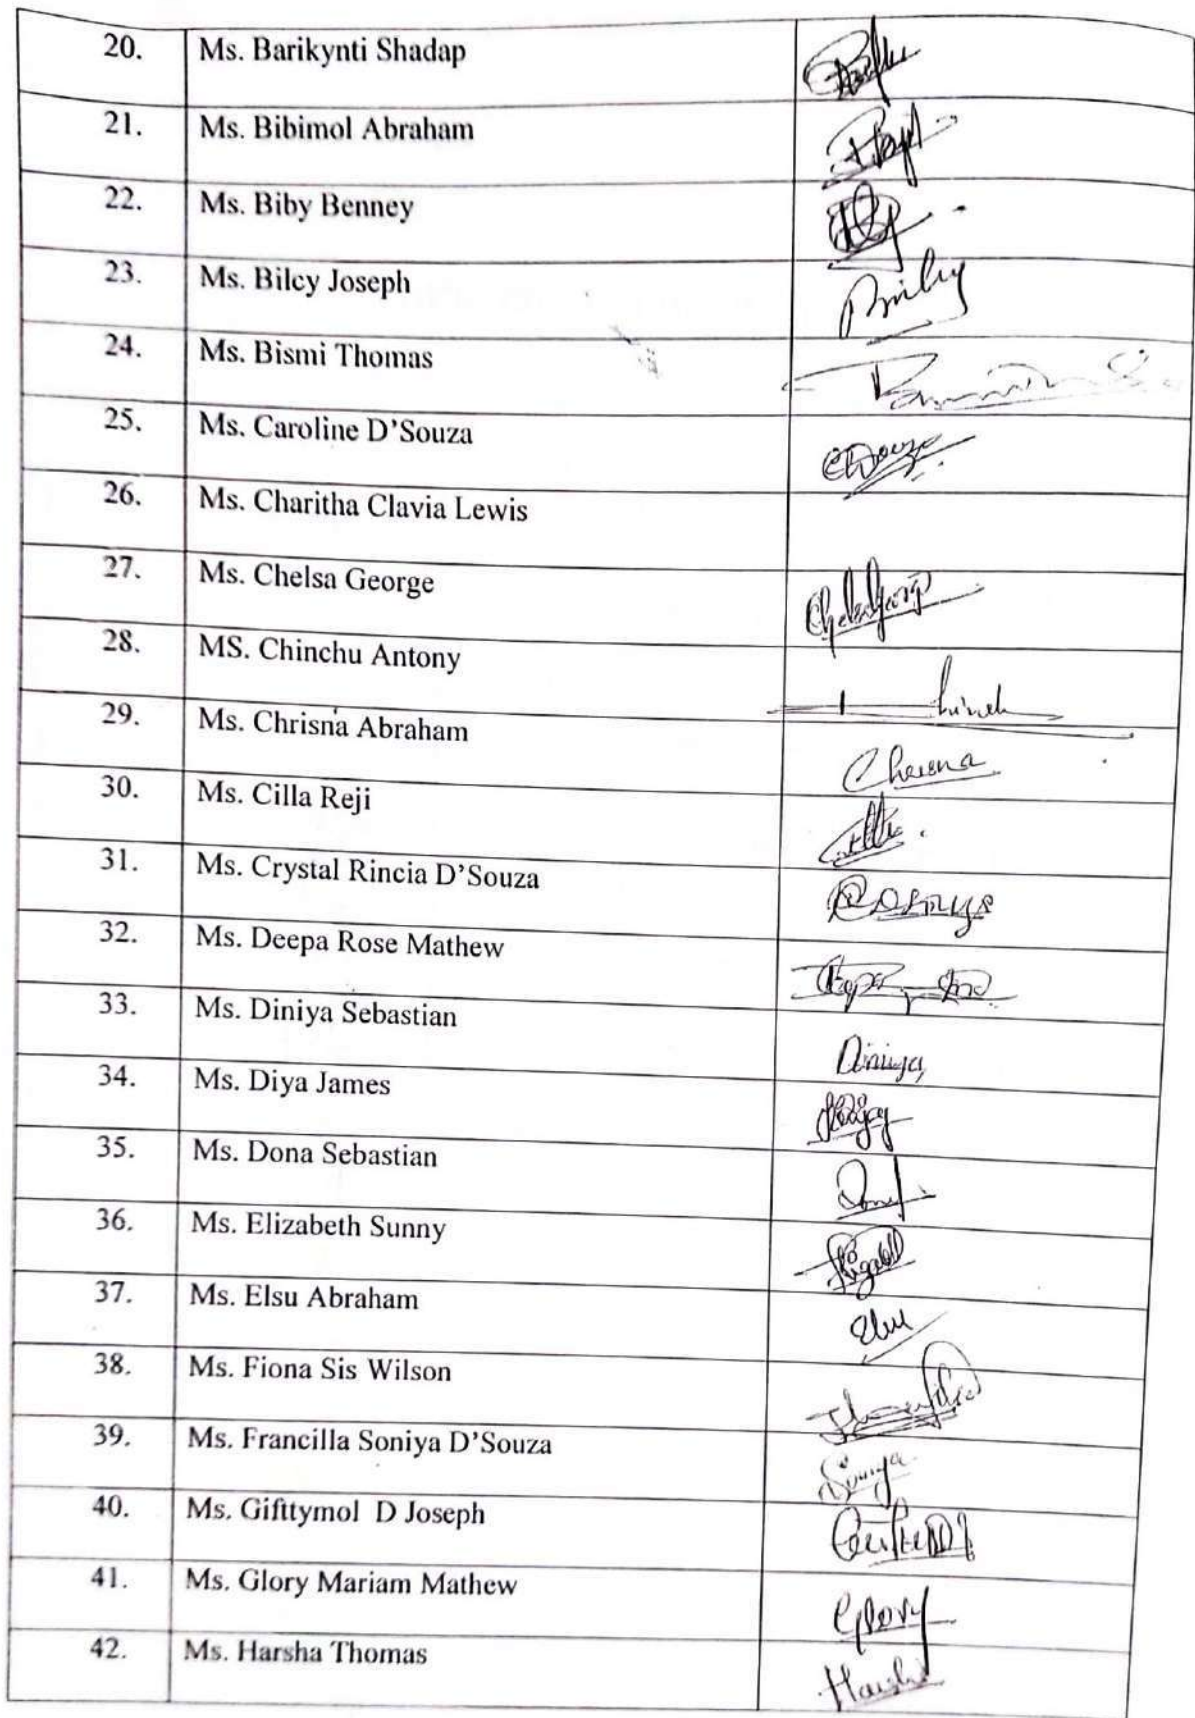 20. Ms. Barikynti Shadap
21. Ms. Bibimol Abraham
22. Ms. Biby Benney
23. Ms. Bilcy Joseph
24. Ms. Bismi Thomas
25. Ms. Caroline D'Souza
26. Ms. Charitha Clavia Lewis
27. Ms. Chelsa George
28. MS. Chinchu Antony
29. Ms. Chrisna Abraham
30. Ms. Cilla Reji
31. Ms. Crystal Rincia D'Souza
32. Ms. Deepa Rose Mathew
33. Ms. Diniya Sebastian Diniya
34. Ms. Diya James
35. Ms. Dona Sebastian
36. Ms. Elizabeth Sunny
37. Ms. Elsu Abraham
38. Ms. Fiona Sis Wilson
39. Ms. Francilla Soniya D'Souza
40. Ms. Gifttymol D Joseph
41. Ms. Glory Mariam Mathew Glory
42. Ms. Harsha Thomas